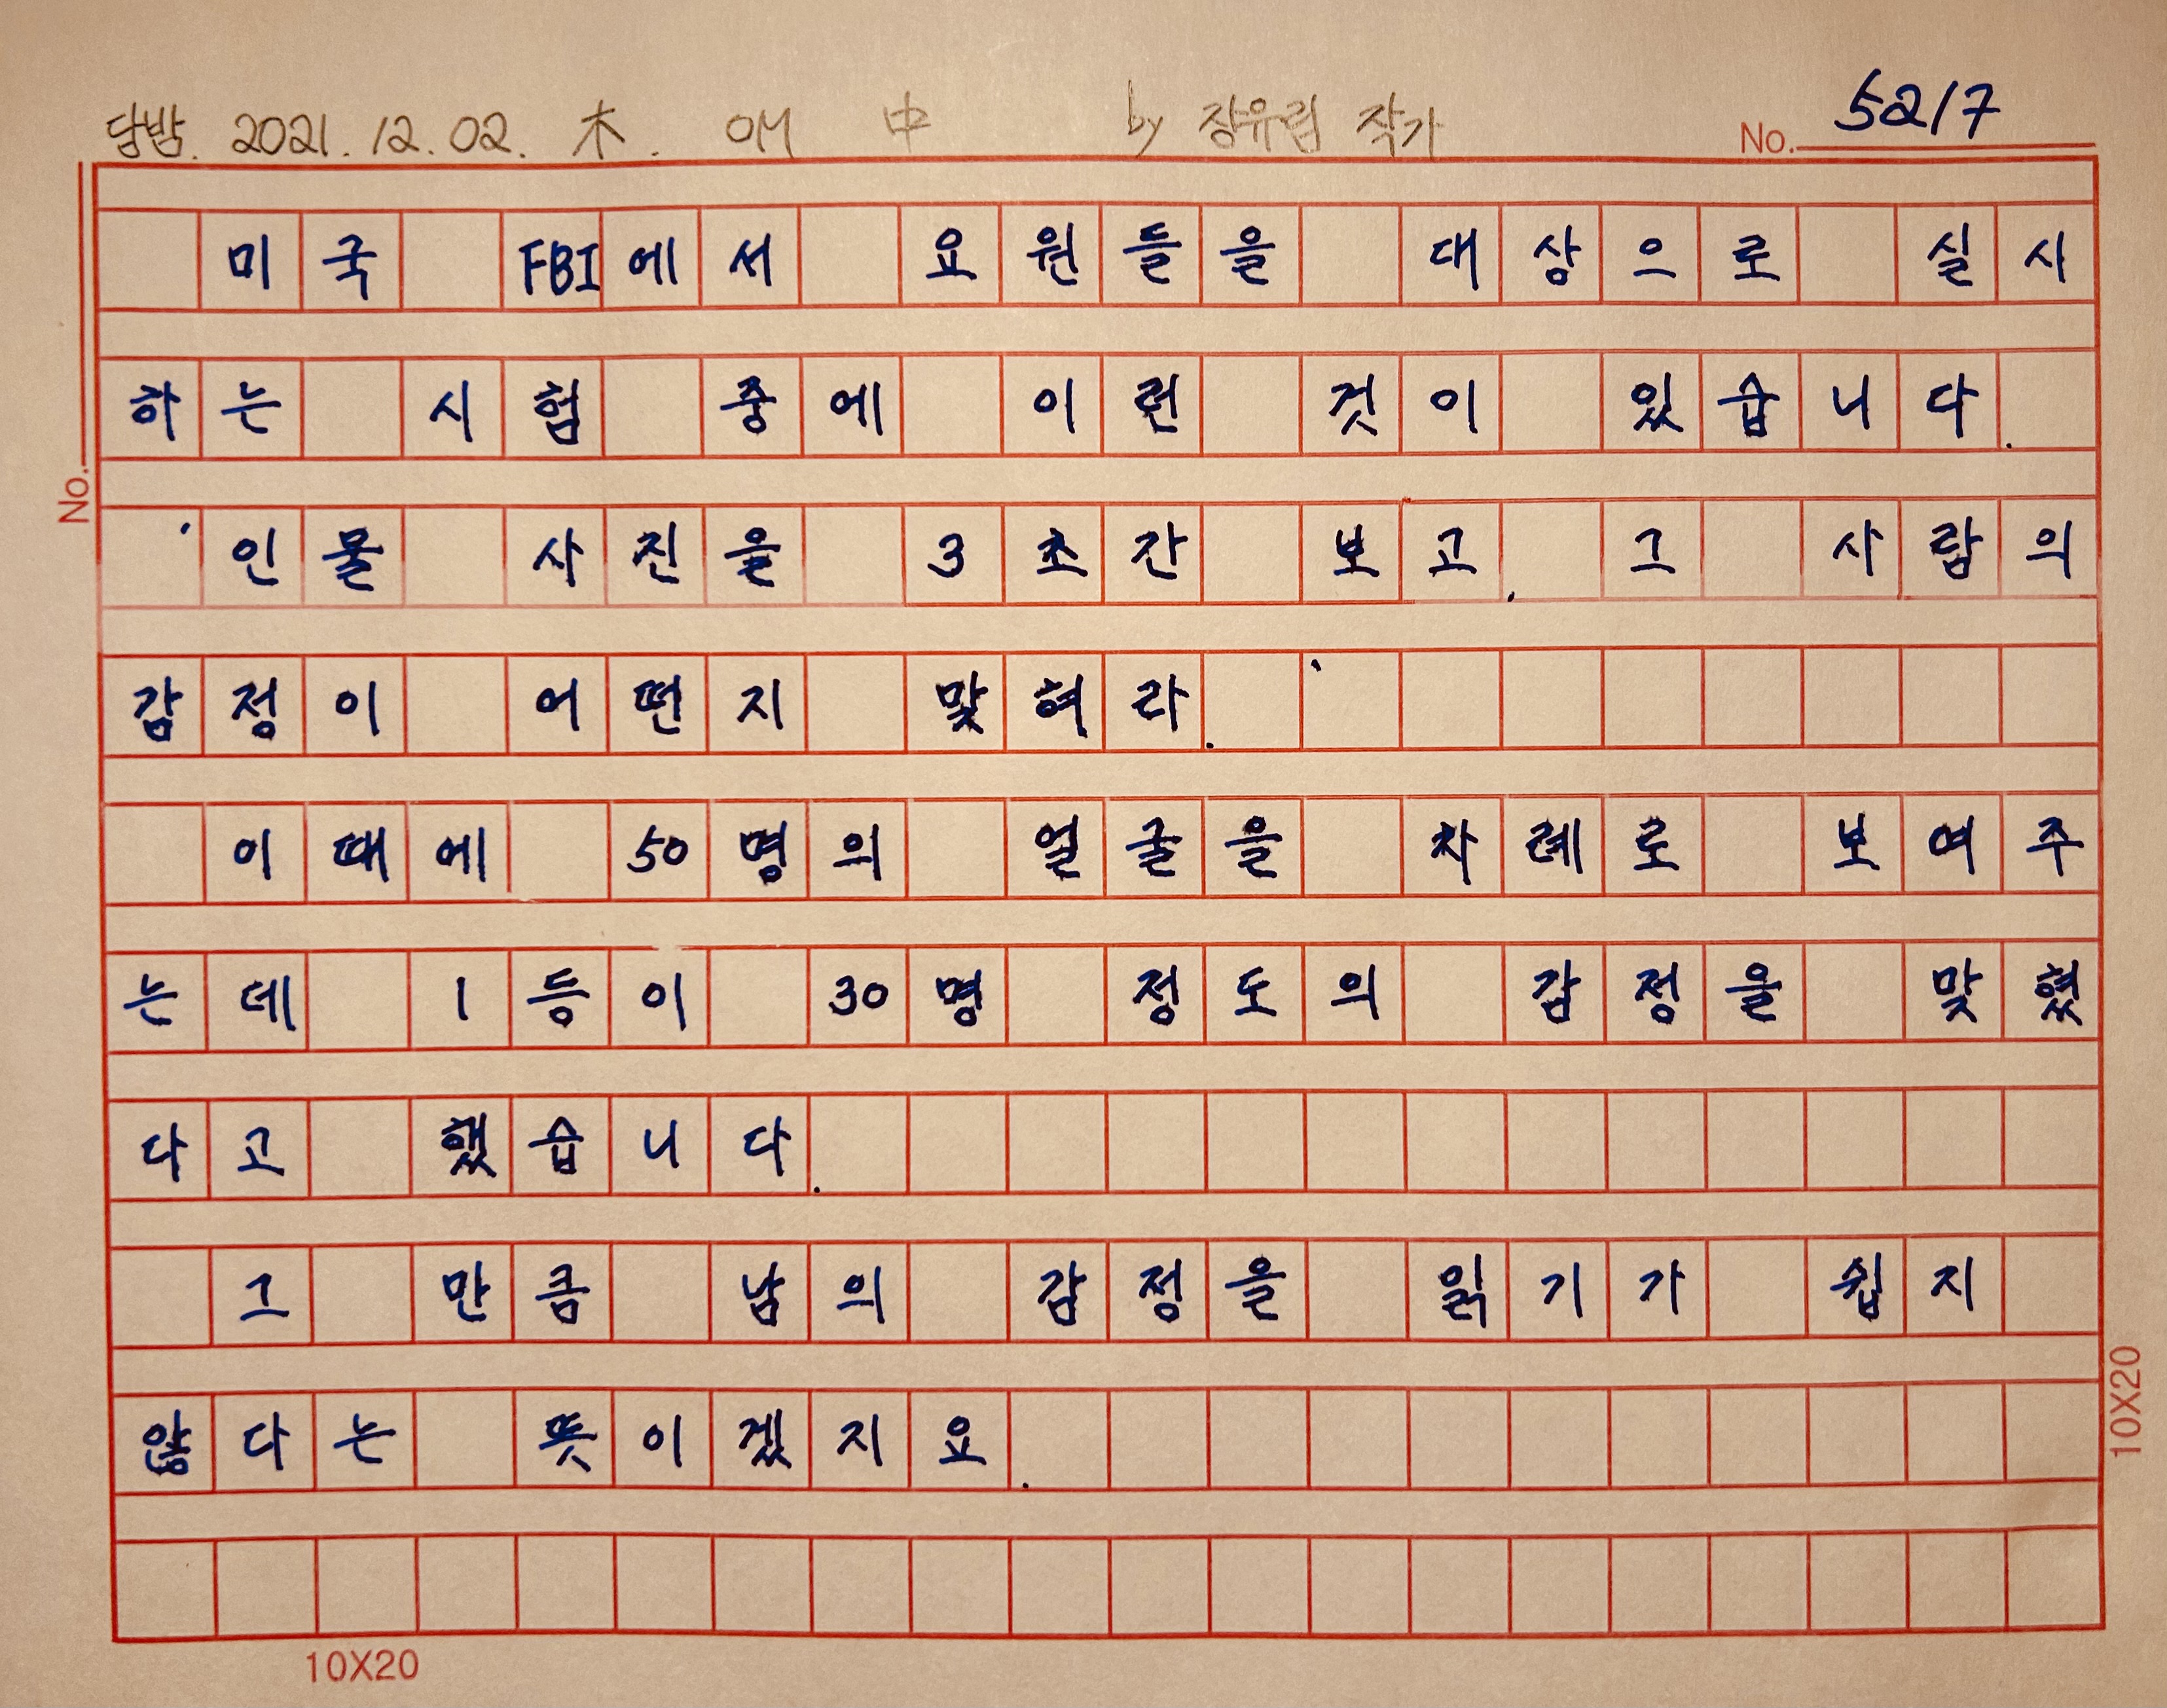 답밤. 2021. 12. 02. 木. by 장유림 작가
No. 5217
미국 FBI에서 요원들을 대상으로 실시
하는 시험 중에 이런 것이 있습니다.
'인물 사진을 3초간 보고, 그 사람의
감정이 어떤지 맞혀라.'
이때에 50명의 얼굴을 차례로 보여주
는데 1등이 30명 정도의 감정을 맞혔
다고 했습니다.
그 만큼 남의 감정을 읽기가 쉽지
않다는 뜻이겠지요.
No.
10X20
10X20